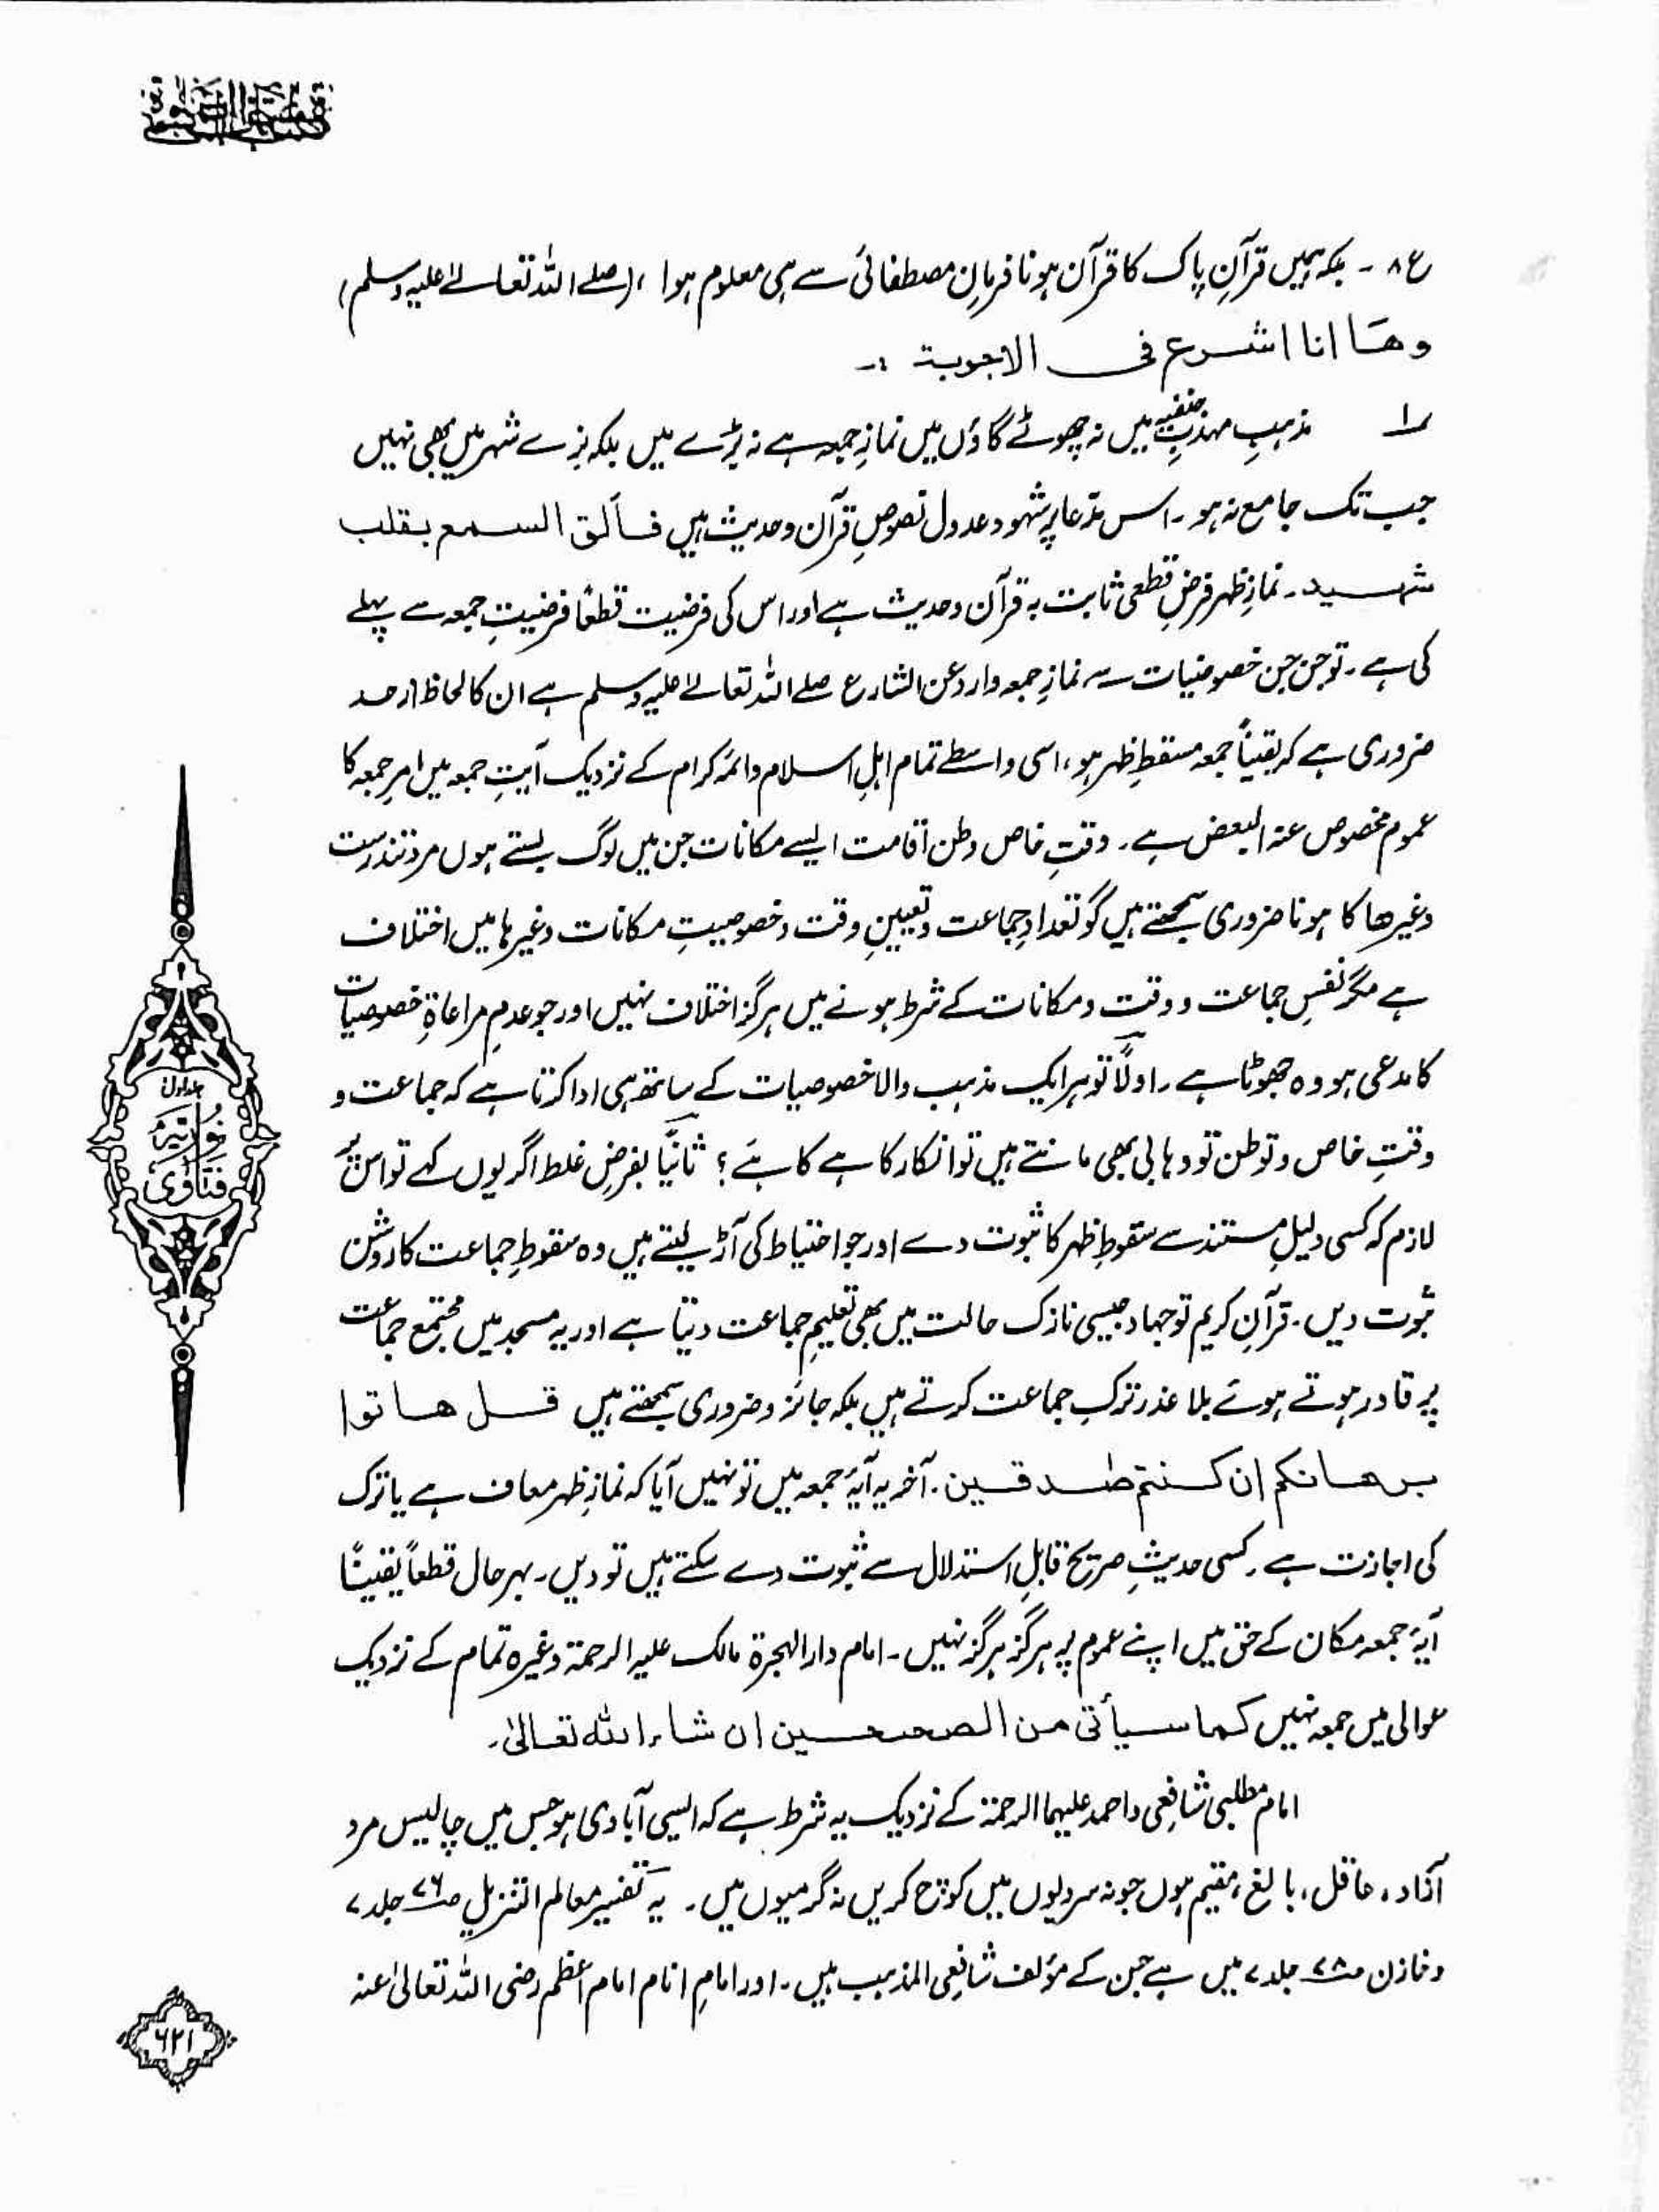 ع۸ - بلکہ ہمیں قرآنِ پاک کا قرآن ہونا فرمانِ مصطفائی سے ہی معلوم ہوا ، (صلے اللہ تعالےٰ علیہ وسلم)
وھَا انا اشرع فی الاجوبۃ :-
۱ مذہبِ مہذبِ حنفیہ میں نہ چھوٹے گاؤں میں نمازِ جمعہ ہے نہ بڑے میں بلکہ نرے شہر میں بھی نہیں
جب تک جامع نہ ہو ۔ اس مدّعا پر شہود عدول نصوصِ قرآن و حدیث ہیں فألق السمع بقلب
شہید ۔ نمازِ ظہر فرضِ قطعی ثابت بہ قرآن و حدیث ہے اور اس کی فرضیت قطعًا فرضیتِ جمعہ سے پہلے
کی ہے ۔ تو جن جن خصوصیات سے نمازِ جمعہ وارد عن الشارع صلے اللہ تعالےٰ علیہ وسلم ہے ان کا لحاظ از حد
ضروری ہے کہ یقیناً جمعہ مسقطِ ظہر ہو ، اسی واسطے تمام اہلِ اسلام و ائمہ کرام کے نزدیک آیتِ جمعہ میں امرِ جمعہ کا
عموم مخصوص عنہ البعض ہے ۔ وقتِ خاص وطن اقامت ایسے مکانات جن میں لوگ بستے ہوں مرد تندرست
وغیرھا کا ہونا ضروری سمجھتے ہیں گو تعدادِ جماعت و تعیینِ وقت و خصوصیتِ مکانات وغیرہا میں اختلاف
ہے مگر نفسِ جماعت و وقت و مکانات کے شرط ہونے میں ہرگز اختلاف نہیں اور جو عدمِ مراعاۃِ خصوصیات
کا مدعی ہو وہ جھوٹا ہے ۔ اولًا تو ہر ایک مذہب والا خصوصیات کے ساتھ ہی ادا کرتا ہے کہ جماعت و
وقتِ خاص و توطن تو وہابی بھی مانتے ہیں تو انکار کاہے کا ہے ؟ ثانیًا بفرضِ غلط اگر یوں کہے تو اس پر
لازم کہ کسی دلیلِ مستند سے سقوطِ ظہر کا ثبوت دے اور جو احتیاط کی آڑ لیتے ہیں وہ سقوطِ جماعت کا روشن
ثبوت دیں ۔ قرآنِ کریم تو جہاد جیسی نازک حالت میں بھی تعلیمِ جماعت دیتا ہے اور یہ مسجد میں مجتمع جماعت
پر قادر ہوتے ہوئے بلا عذر ترکِ جماعت کرتے ہیں بلکہ جائز و ضروری سمجھتے ہیں قل ھاتوا
برھانکم ان کنتم صٰدقین ۔ آخر یہ آیۂ جمعہ میں تو نہیں آیا کہ نمازِ ظہر معاف ہے یا ترک
کی اجازت ہے ۔ کسی حدیثِ صریح قابلِ استدلال سے ثبوت دے سکتے ہیں تو دیں ۔ بہرحال قطعاً یقینًا
آیۂ جمعہ مکان کے حق میں اپنے عموم پر ہرگز ہرگز نہیں ۔ امام دار الہجرۃ مالک علیہ الرحمۃ وغیرہ تمام کے نزدیک
عوالی میں جمعہ نہیں کما سیأتی من الصحیحین ان شاء اللہ تعالیٰ ۔
امام مطلبی شافعی و احمد علیہما الرحمۃ کے نزدیک یہ شرط ہے کہ ایسی آبادی ہو جس میں چالیس مرد
آزاد ، عاقل ، بالغ ، مقیم ہوں جو نہ سردیوں میں کوچ کریں نہ گرمیوں میں ۔ یہ تفسیر معالم التنزیل ص۷۶ جلد ۷
و خازن ص۷۸ جلد ۷ میں ہے جن کے مؤلف شافعی المذہب ہیں ۔ اور امامِ انام امام اعظم رضی اللہ تعالیٰ عنہ
جلد اول
فتاویٰ نوریہ
۶۲۱